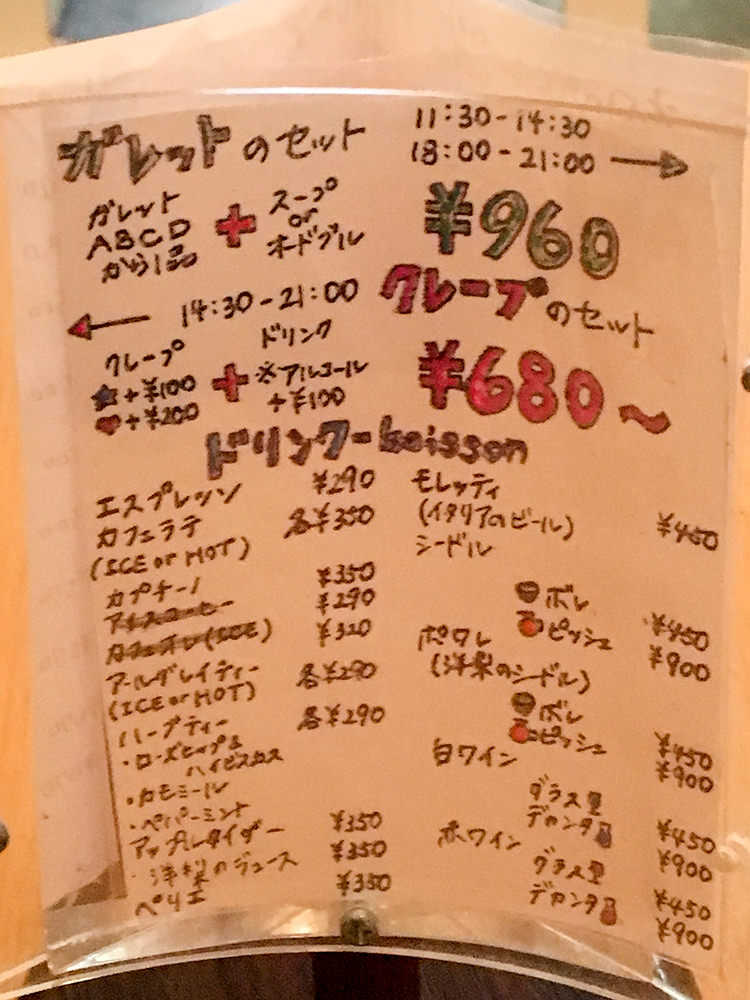 ガレットのセット
11:30-14:30
18:00-21:00
ガレット
ABCD
から1品
+
スープ
or
オードブル
¥960
14:30-21:00
クレープのセット
クレープ
★+¥100
♥+¥200
+
ドリンク
※アルコール
+¥100
¥680〜
ドリンクーboisson
エスプレッソ ¥290
カフェラテ 各¥350
(ICE or HOT)
カプチーノ ¥350
アイスコーヒー ¥290
カフェオレ(ICE) ¥320
アールグレイティー 各¥290
(ICE or HOT)
ハーブティー 各¥290
・ローズヒップ&
ハイビスカス
・カモミール
・ペパーミント
アップルタイザー ¥350
洋梨のジュース ¥350
ペリエ ¥350
モレッティ
(イタリアのビール) ¥450
シードル
ボレ ¥450
ピッシュ ¥900
ポワレ
(洋梨のシードル)
ボレ ¥450
ピッシュ ¥900
白ワイン
グラス ¥450
デカンタ ¥900
赤ワイン
グラス ¥450
デカンタ ¥900